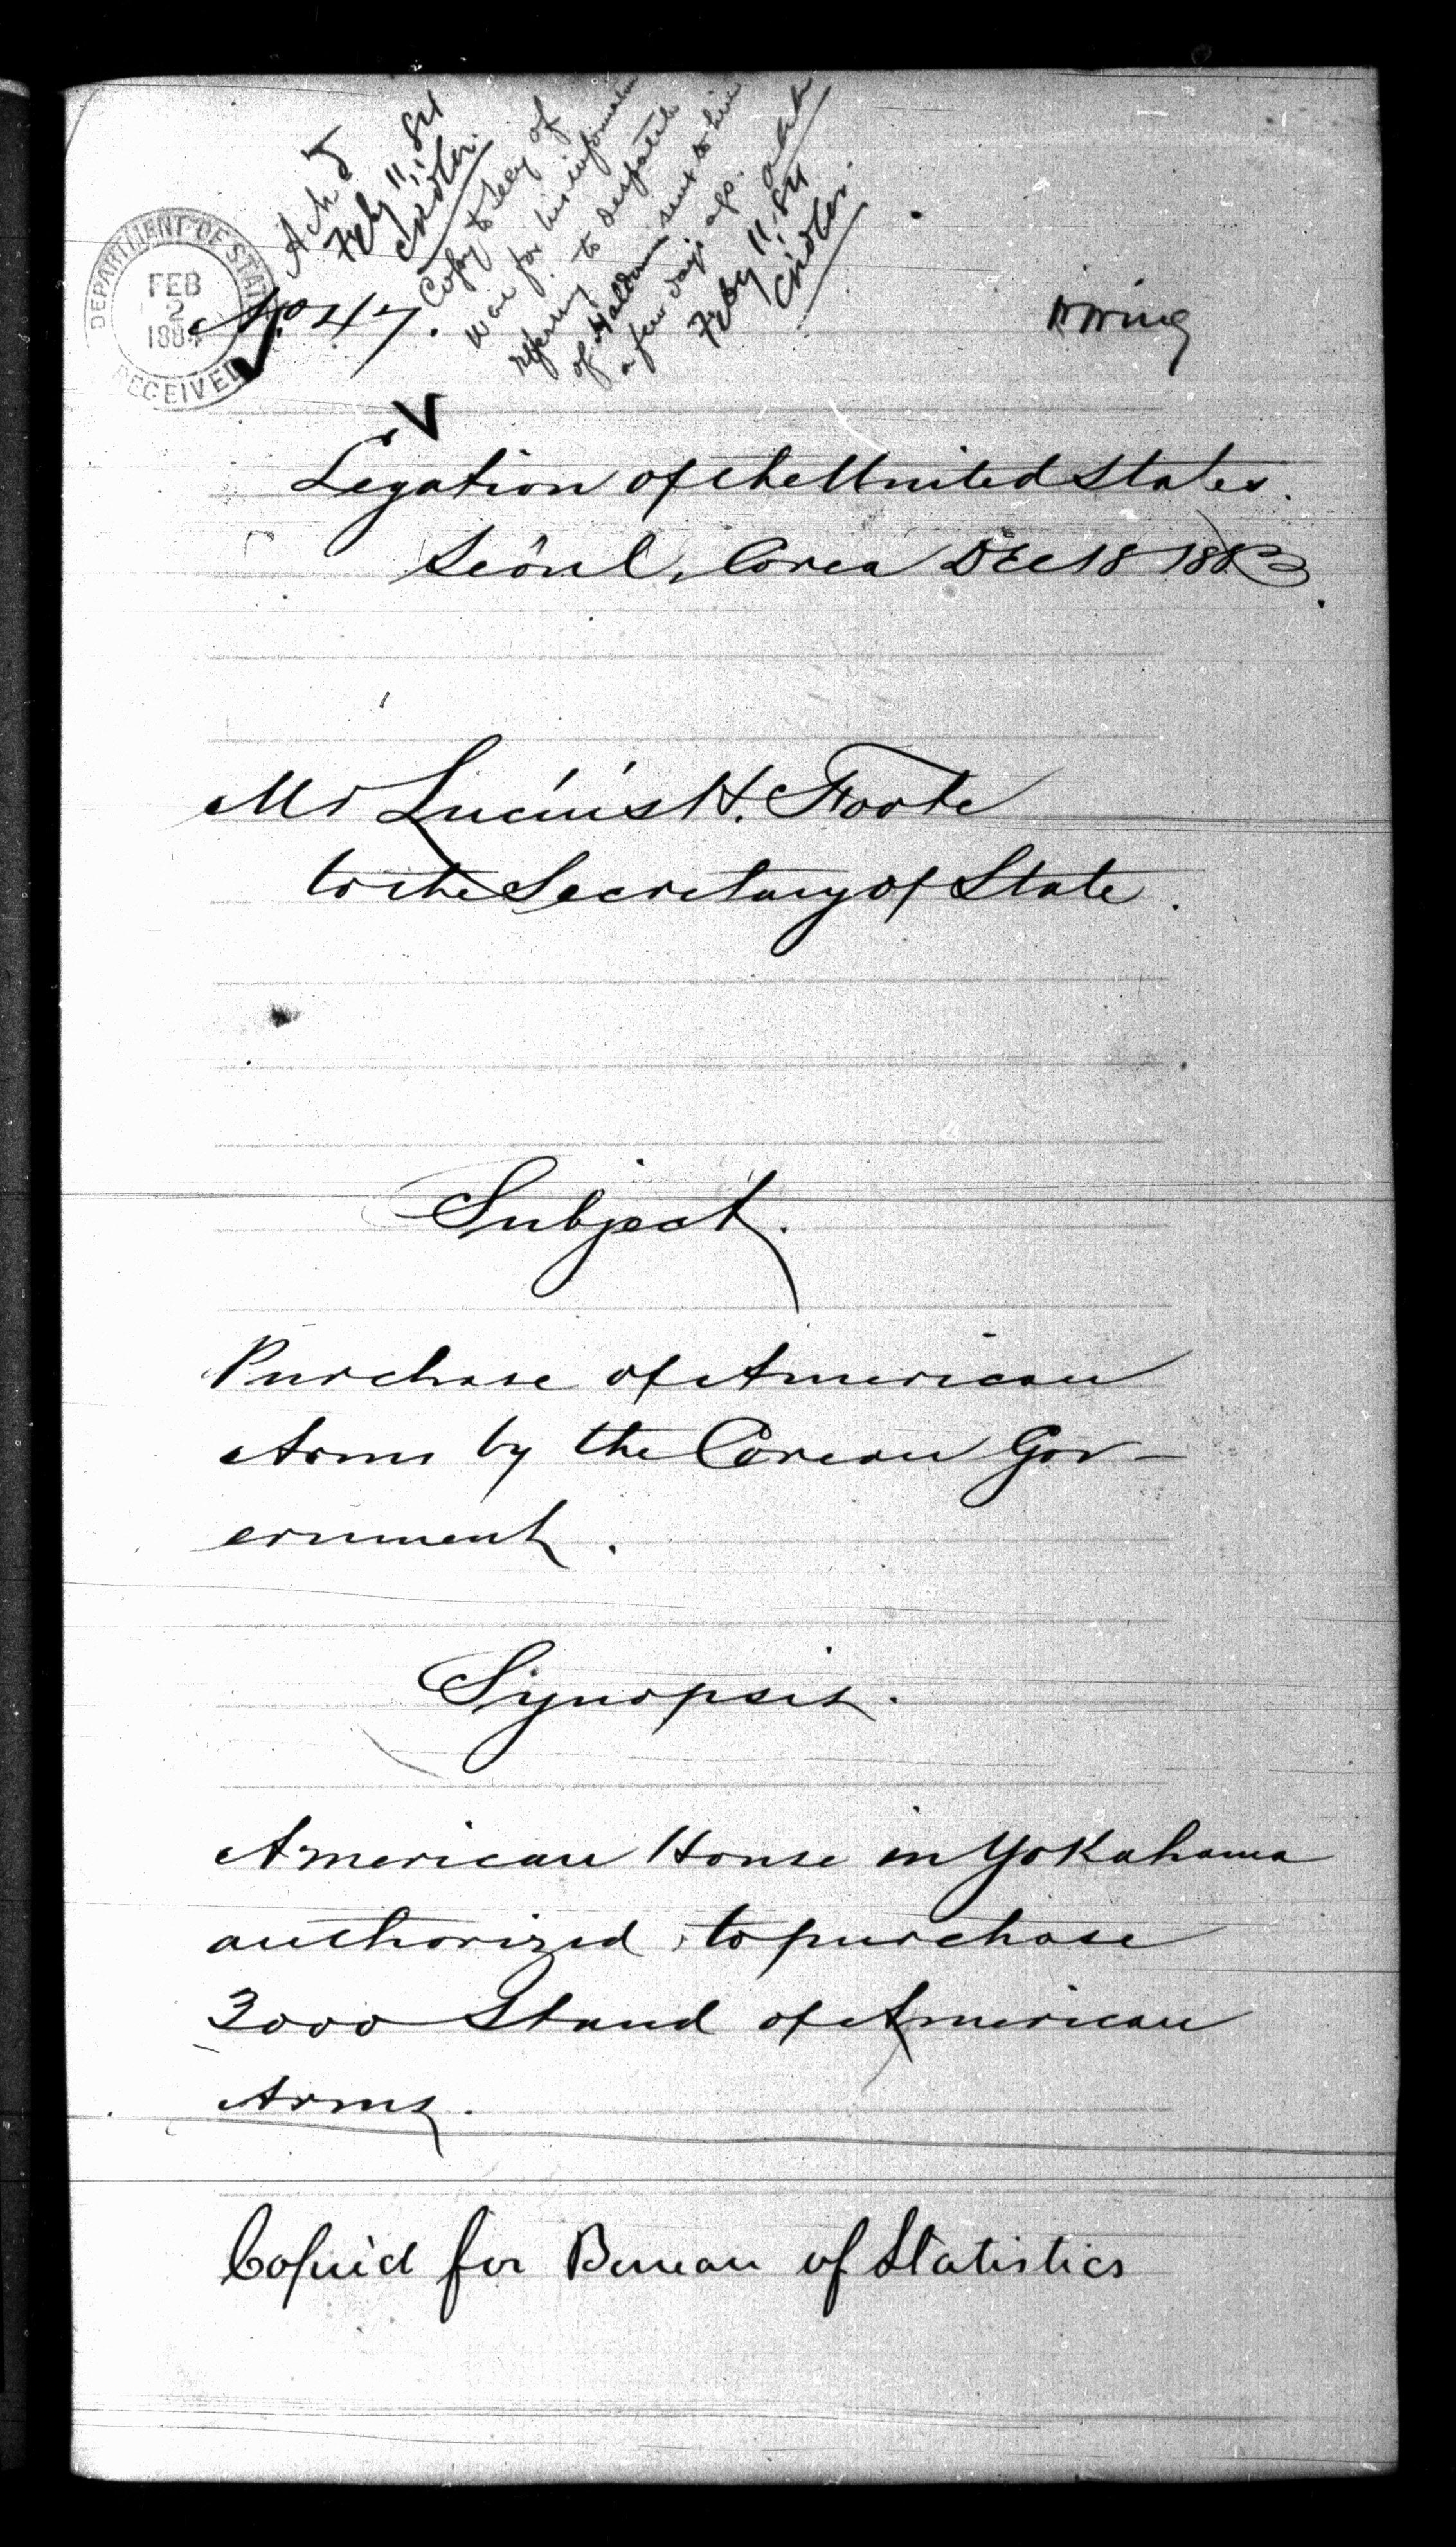 DEPARTMENT OF STATE
FEB
2
1884
RECEIVED
Ack'd
Feby 11, '84
Copy to Secy of
War for his information
referring to despatch
of Haldeman sent to him
a few days ago.
Feby 11, '84
No 47.
Legation of the United States.
Seôul, Corea Dec 18 1883.
Mr Lucius H. Foote
to the Secretary of State.
Subject.
Purchase of American
Arms by the Corean Gov-
ernment.
Synopsis.
American House in Yokahama
authorized to purchase
3000 Stand of American
Arms.
Copied for Bureau of Statistics